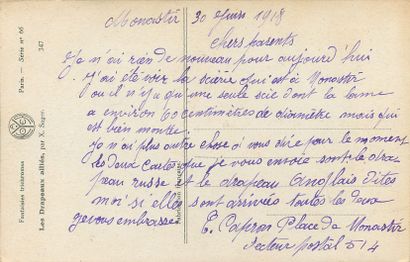 Monastir 30 Juin 1918
chers parents
Je n'ai rien de nouveau pour aujourd'hui
J'ai été voir la scierie qui est à Monastir
ou il n'y a qu'une seule scie dont la lame
a environ 60 centimètres de diamètre mais qui
est bien montée
Je n'ai plus autre chose à vous dire pour le moment
les deux cartes que je vous envoie sont le dra
peau russe et le drapeau anglais dites
moi si elles sont arrivées toutes les deux
je vous embrasse
E. Capron Place de Monastir
secteur postal 514
Paris. — Série n° 66
347
Fantaisies trichromes
Les Drapeaux alliés, par X. Sager.
Fabrication française